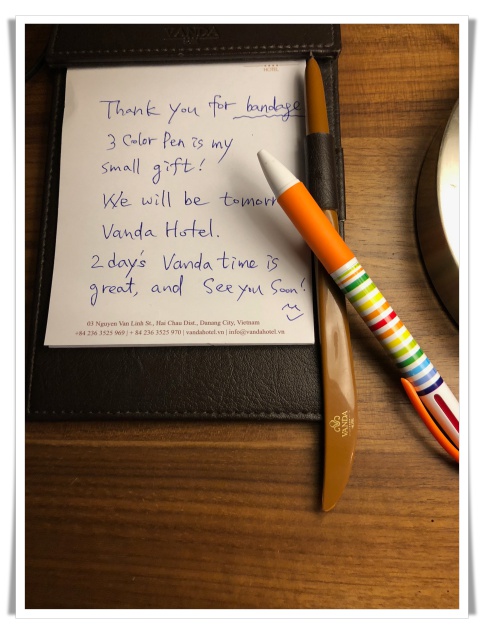 VANDA
HOTEL
Thank you for bandage
3 Color Pen is my
small gift!
We will be tomorr
Vanda Hotel.
2 day's Vanda time is
great, and See you Soon!
03 Nguyen Van Linh St., Hai Chau Dist., Danang City, Vietnam
+84 236 3525 969 | + 84 236 3525 970 | vandahotel.vn | info@vandahotel.vn
VANDA